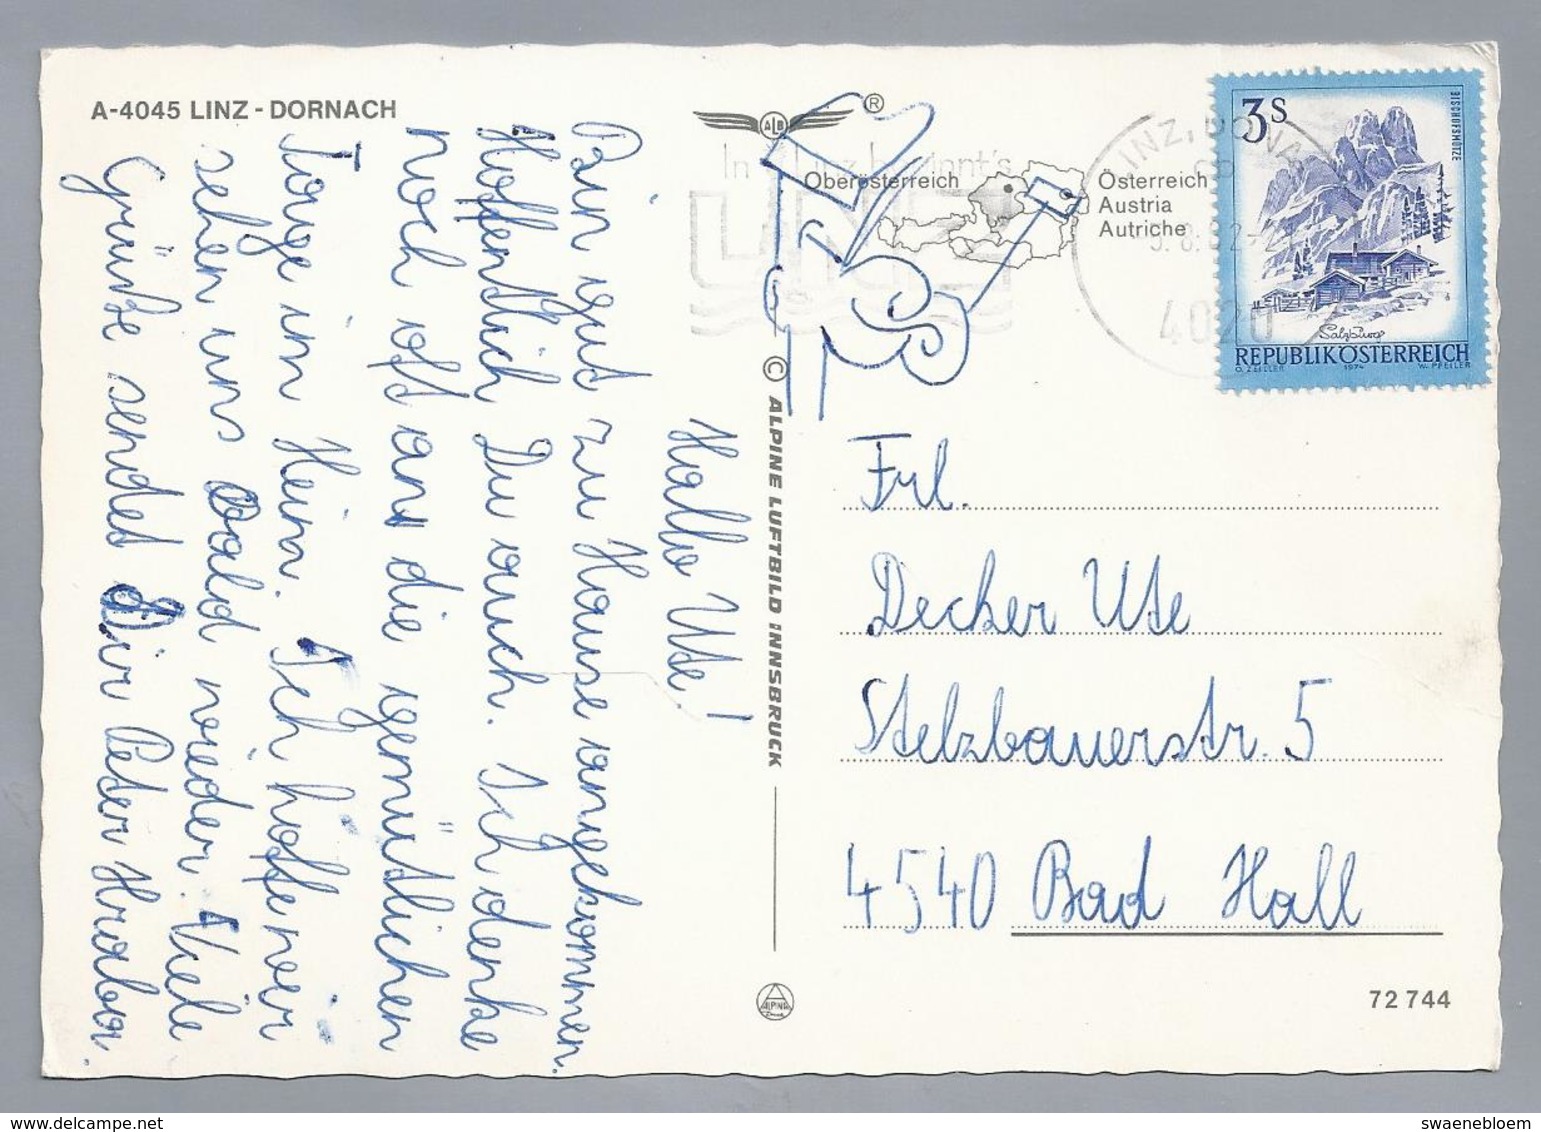 A-4045 LINZ - DORNACH
Hallo Ute!
Bin gut zu Hause angekommen.
Hoffentlich Du auch. Ich denke
noch oft an die gemütlichen
Tage im Heim. Ich hoffe wir
sehen uns bald wieder. Viele
Grüße sendet Dir Peter Hraber.
© ALPINE LUFTBILD INNSBRUCK
ALPINA
ALB
®
Oberösterreich
Österreich
Austria
Autriche
In Linz beginnt's
LINZ, DONAU
4020
3S
BISCHOFSMÜTZE
Salzburg
REPUBLIK ÖSTERREICH
O. ZEILLER 1974 W. PFEILER
Frl.
Decker Ute
Stelzbauerstr. 5
4540 Bad Hall
72 744
swaenebloem www.delcampe.net